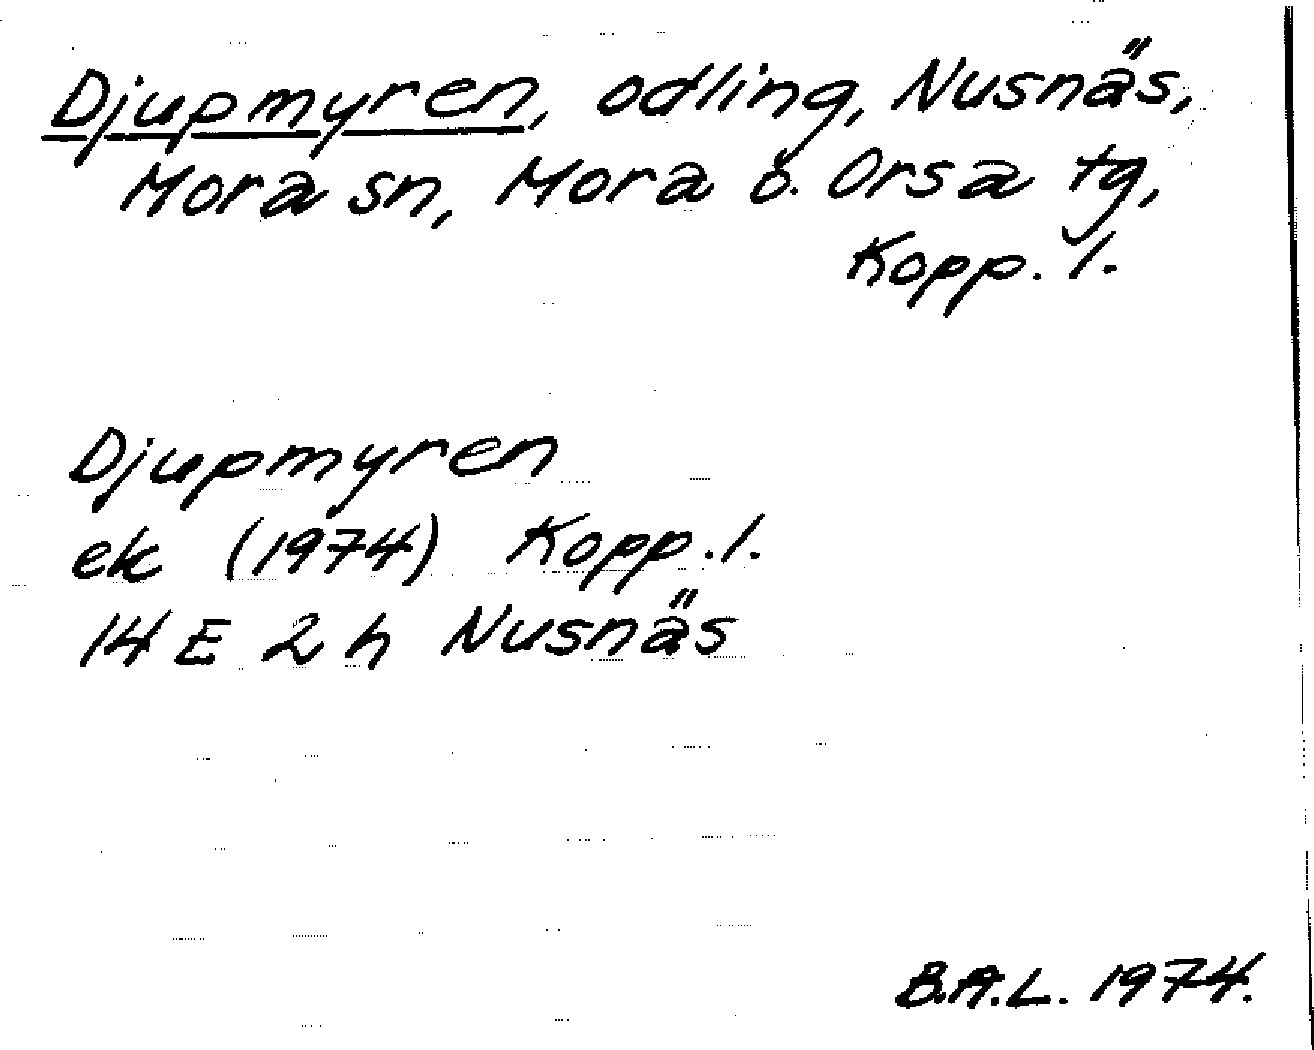 Djupmyren, odling, Nusnäs,
Mora sn, Mora o. Orsa tg,
Kopp. l.
Djupmyren
ek (1974) Kopp. l.
14 E 2 h Nusnäs
B.A.L. 1974.